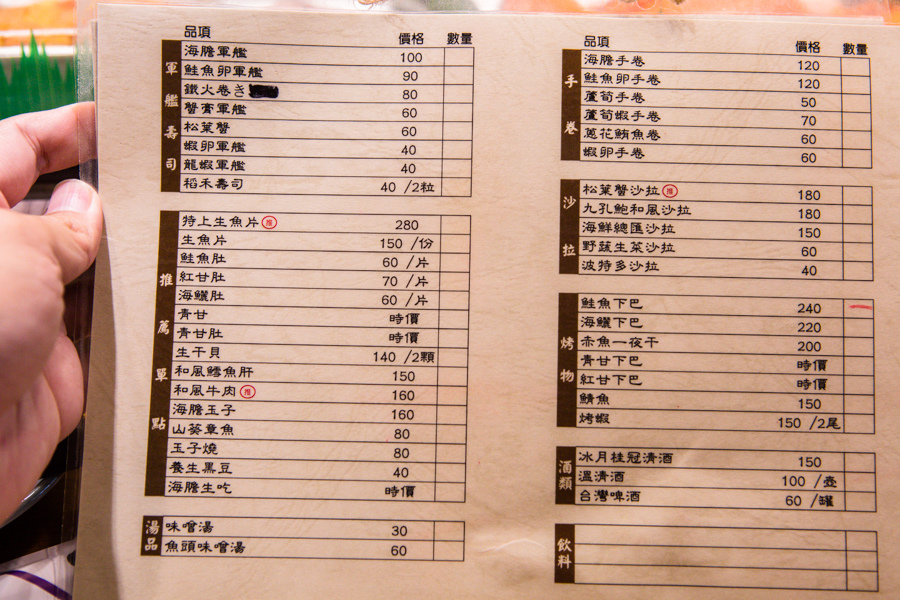 品項 價格 數量
軍艦壽司
海膽軍艦 100
鮭魚卵軍艦 90
鐵火卷き 80
蟹膏軍艦 60
松葉蟹 60
蝦卵軍艦 40
龍蝦軍艦 40
稻禾壽司 40 /2粒
推薦單點
特上生魚片 推 280
生魚片 150 /份
鮭魚肚 60 /片
紅甘肚 70 /片
海鱺肚 60 /片
青甘 時價
青甘肚 時價
生干貝 140 /2顆
和風鱈魚肝 150
和風牛肉 推 160
海膽玉子 160
山葵章魚 80
玉子燒 80
養生黑豆 40
海膽生吃 時價
湯品
味噌湯 30
魚頭味噌湯 60
品項 價格 數量
手卷
海膽手卷 120
鮭魚卵手卷 120
蘆筍手卷 50
蘆筍蝦手卷 70
蔥花鮪魚卷 60
蝦卵手卷 60
沙拉
松葉蟹沙拉 推 180
九孔鮑和風沙拉 180
海鮮總匯沙拉 150
野蔬生菜沙拉 60
波特多沙拉 40
烤物
鮭魚下巴 240
海鱺下巴 220
赤魚一夜干 200
青甘下巴 時價
紅甘下巴 時價
鯖魚 150
烤蝦 150 /2尾
酒類
冰月桂冠清酒 150
溫清酒 100 /壺
台灣啤酒 60 /罐
飲料